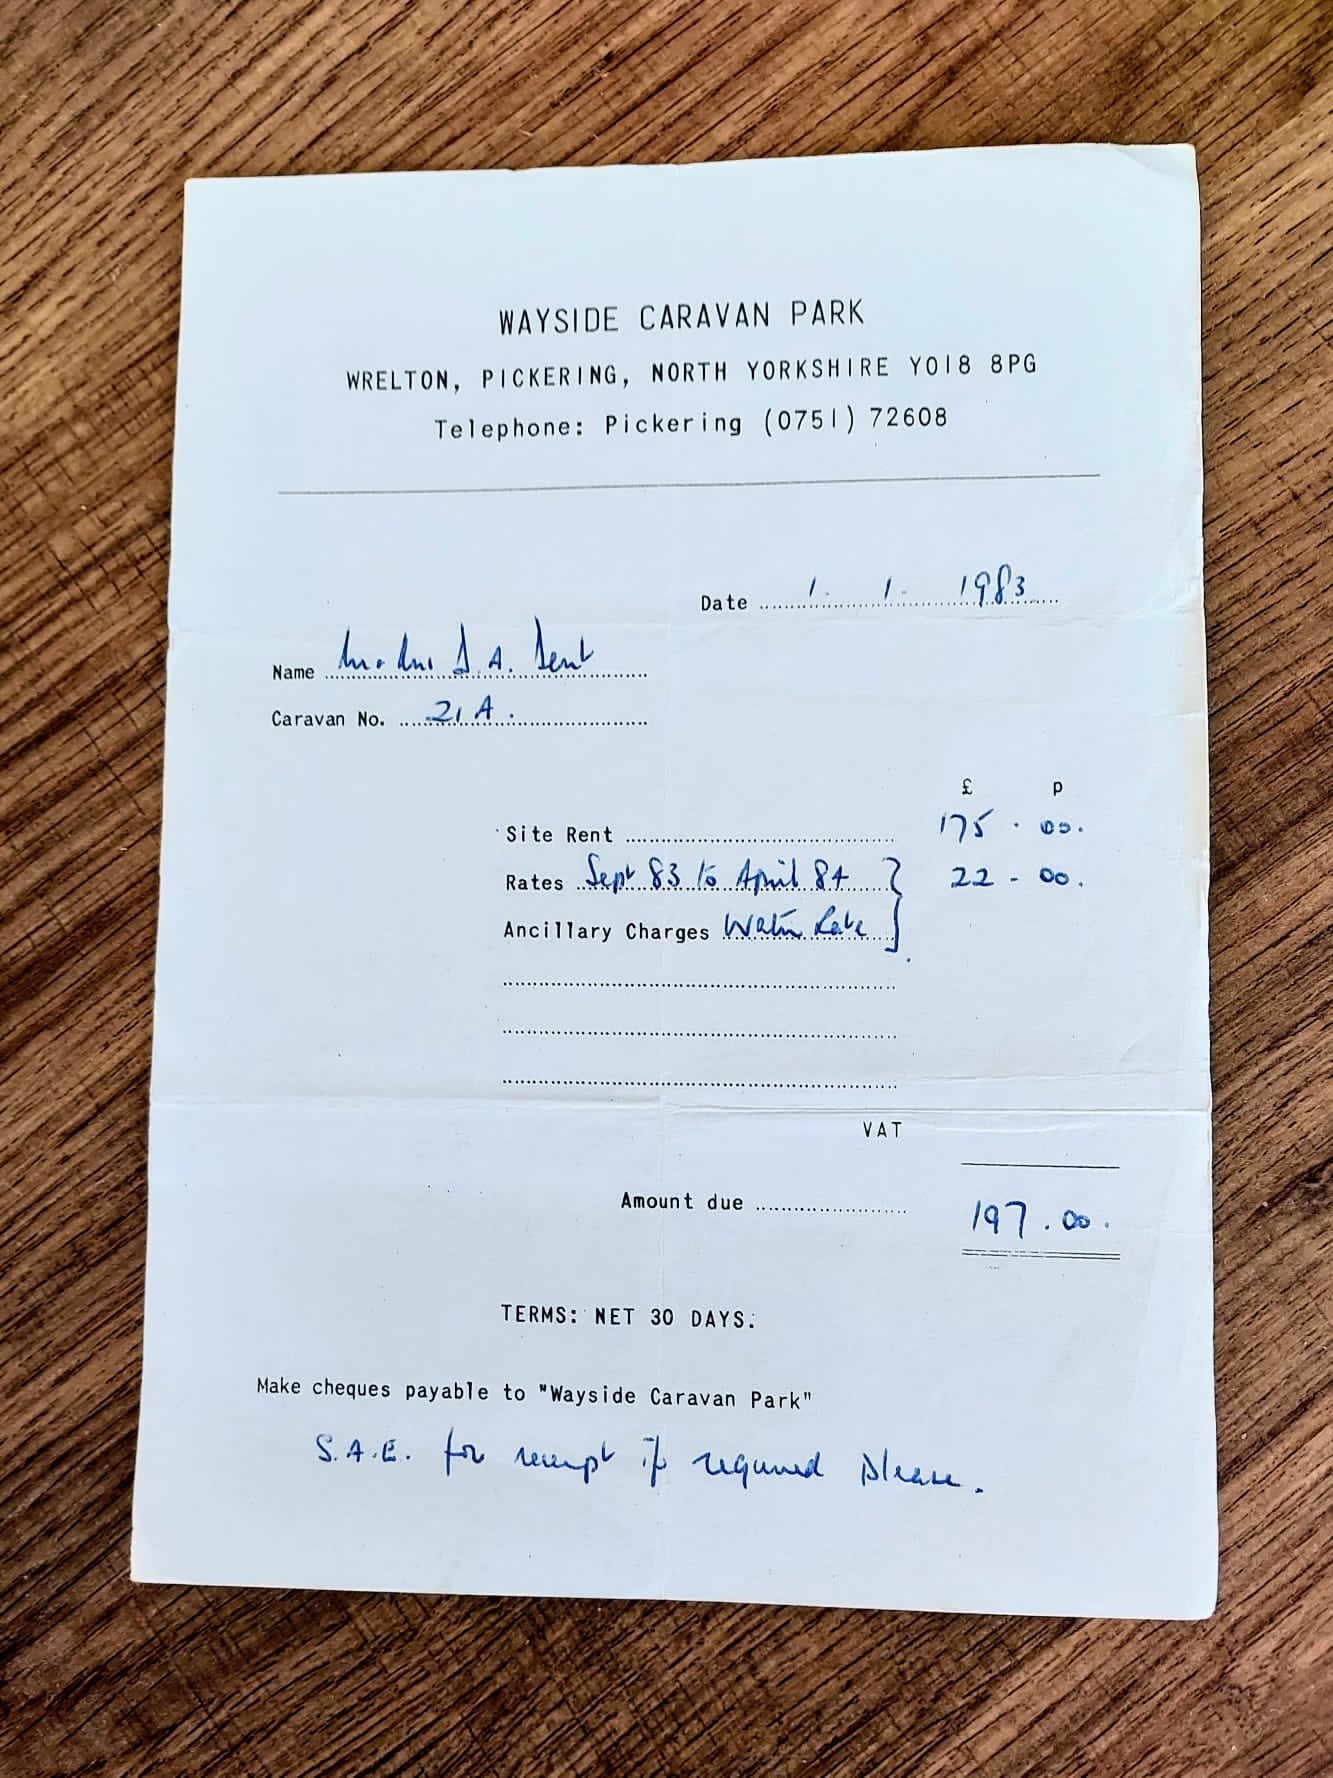 WAYSIDE CARAVAN PARK
WRELTON, PICKERING, NORTH YORKSHIRE YO18 8PG
Telephone: Pickering (0751) 72608
Date 1. 1. 1983
Name Mr & Mrs D. A. Dent
Caravan No. 21 A.
£ p
Site Rent 175 . 00.
Rates Sept 83 to April 84 } 22 - 00.
Ancillary Charges Water Rate
VAT
Amount due 197 . 00.
TERMS: NET 30 DAYS.
Make cheques payable to "Wayside Caravan Park"
S.A.E. for receipt if required please.